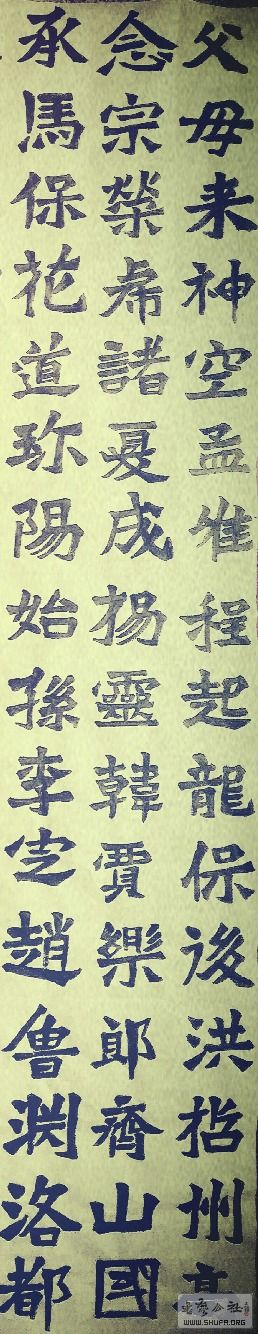 父母来神空孟雅程起龍保後洪招州高
念宗榮希諸夏成揚靈韓賈樂郎齊山國
承馬保花道珎陽始孫李定趙魯渊洛都
書法公社
WWW.SHUFA.ORG